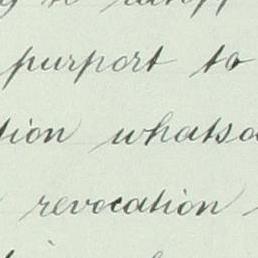 purport to
tion whatso
revocation